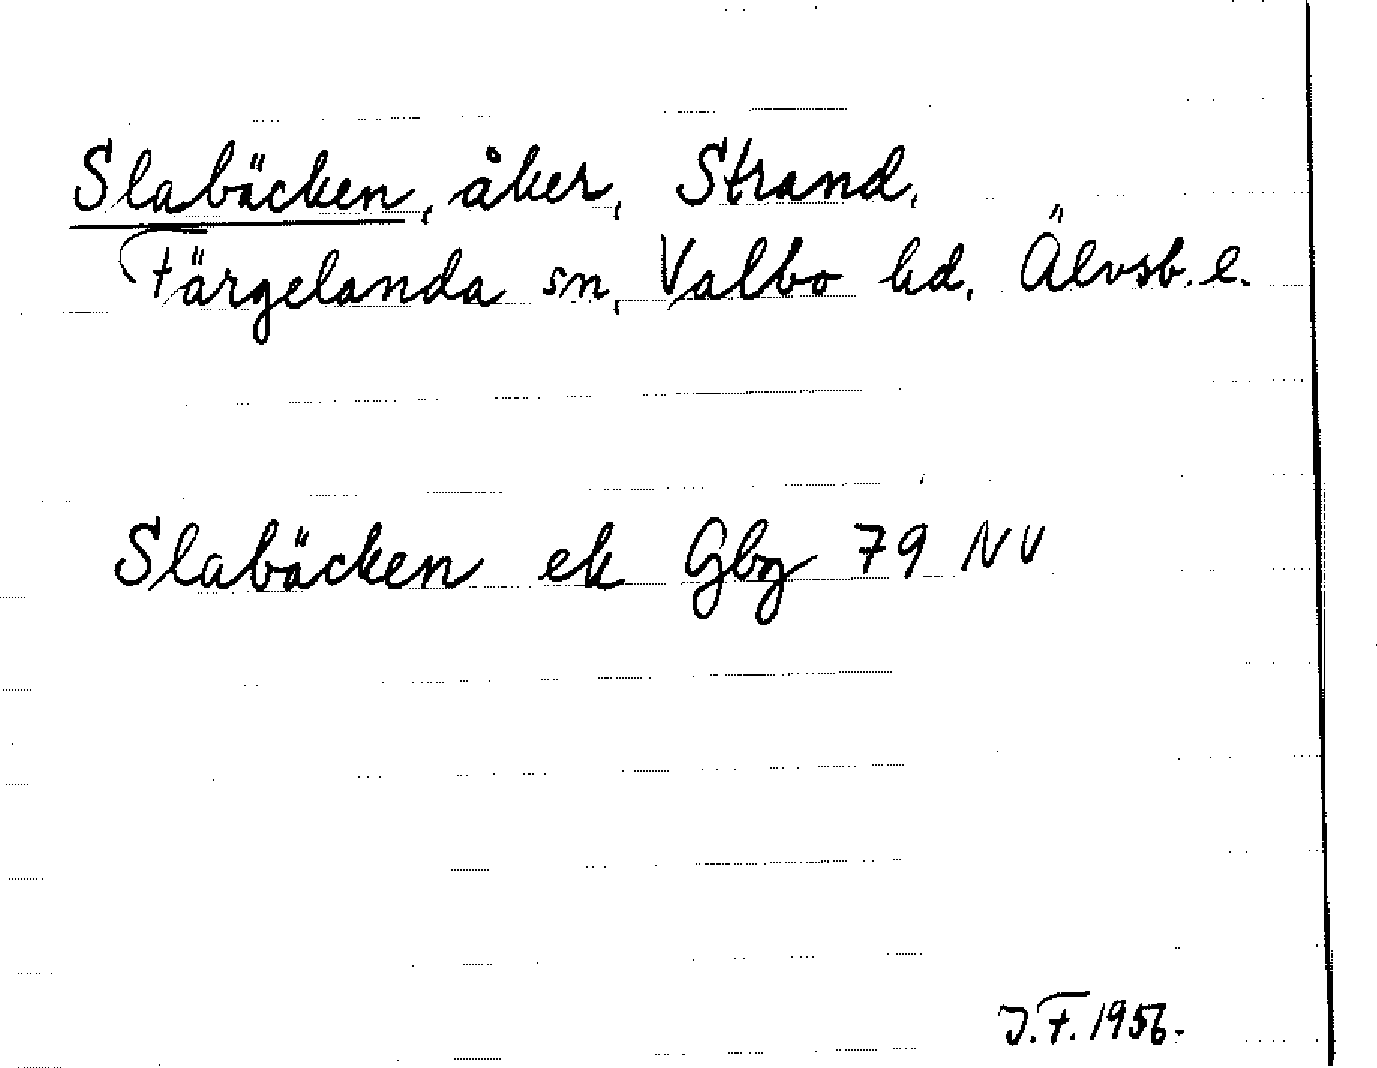 Slabäcken, åker, Strand,
Färgelanda sn, Valbo hd, Älvsb. l.
Slabäcken ek Gbg 79 NV
J.F. 1956.